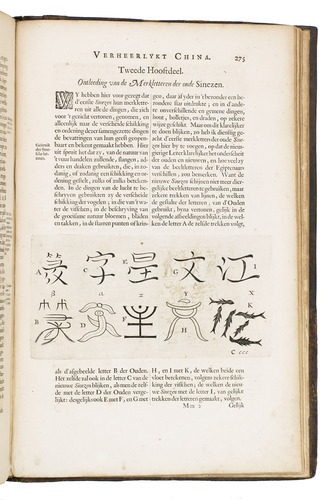 VERHEERLYKT CHINA. 275
Tweede Hoofdeel.
Ontleeding van de Merkletteren der oude Sinezen.
WY hebben hier voor gezegt dat
d'eerste Sinezen hun merklette-
ren uit alle de dingen, die zich
voor 't gezicht vertonen, genomen, en
alleenlijk naar de verscheide schikking
en ordening dezer samengezette dingen
de bevattingen van hun geest geopen-
baart en bekent gemaakt hebben. Hier
uit spruit het dat zy, van de natuur van
't vuur handelen zullende, slangen, ad-
ders en draken gebruikten, die, in zo-
danig, of zodanig een schikking en or-
dening gestelt, zulks of zulks beteken-
den. In de dingen van de lucht te be-
schryven gebruikten zy de verscheide
schikking der vogelen; in die van 't wa-
ter de visschen, in de beschryving van
de groeisame natuur bloemen, bladen
en takken, in de starren punten of krin-
Gebruik
der Sine-
sche let-
teren.
gen, daar af yder in 't bezonder een be-
zondere star uitdrukte; en in d'ande-
re onverschillende en gemene dingen,
hout, bolletjes, en draden, op zekere
wijze geschikt. Maar om dit klarelijker
te doen blijken, zo heb ik dienstig ge-
acht d'eerste merkletteren der oude Sine-
zen hier by te voegen, op dat de nieuws-
gierige Lezer klarelijk het onderscheit
der ouden en nieuwen, en hoe veel zy
van de beeltletteren der Egiptenaars
verschillen, zou bemerken. Want de
nieuwe Sinezen schijnen niet meer dier-
gelijke beeltletteren te gebruiken, maar
zekere trekken van lijnen, de welken
de gestalte der letteren, van d'Ouden
gebruikt, byna vertonen, gelijk in de
volgende afbeeldingen blijkt, in de wel-
ken de letter A de zelfde trekken volgt,
A 字 E 星 G 文 江 I
B D F H K
C ccc
als d'afgebeelde letter B der Ouden.
Het zelfde zal ook in de letter C van de
nieuwe Sinezen blijken, als men de zelf-
de met de letter D der Ouden verge-
lijkt: desgelijks ook E met F, en G met
H, en I met K, de welken beide een
vloet betekenen, volgens zekere schik-
king der visschen; de welken de nieu-
we Sinezen met de letter I, van gelijke
trekken der letteren gemaakt, volgen.
Mm 2 Gelijk